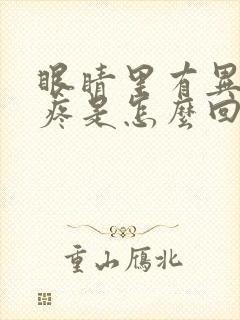 眼睛里有異
疼是怎麼回
重山雁北